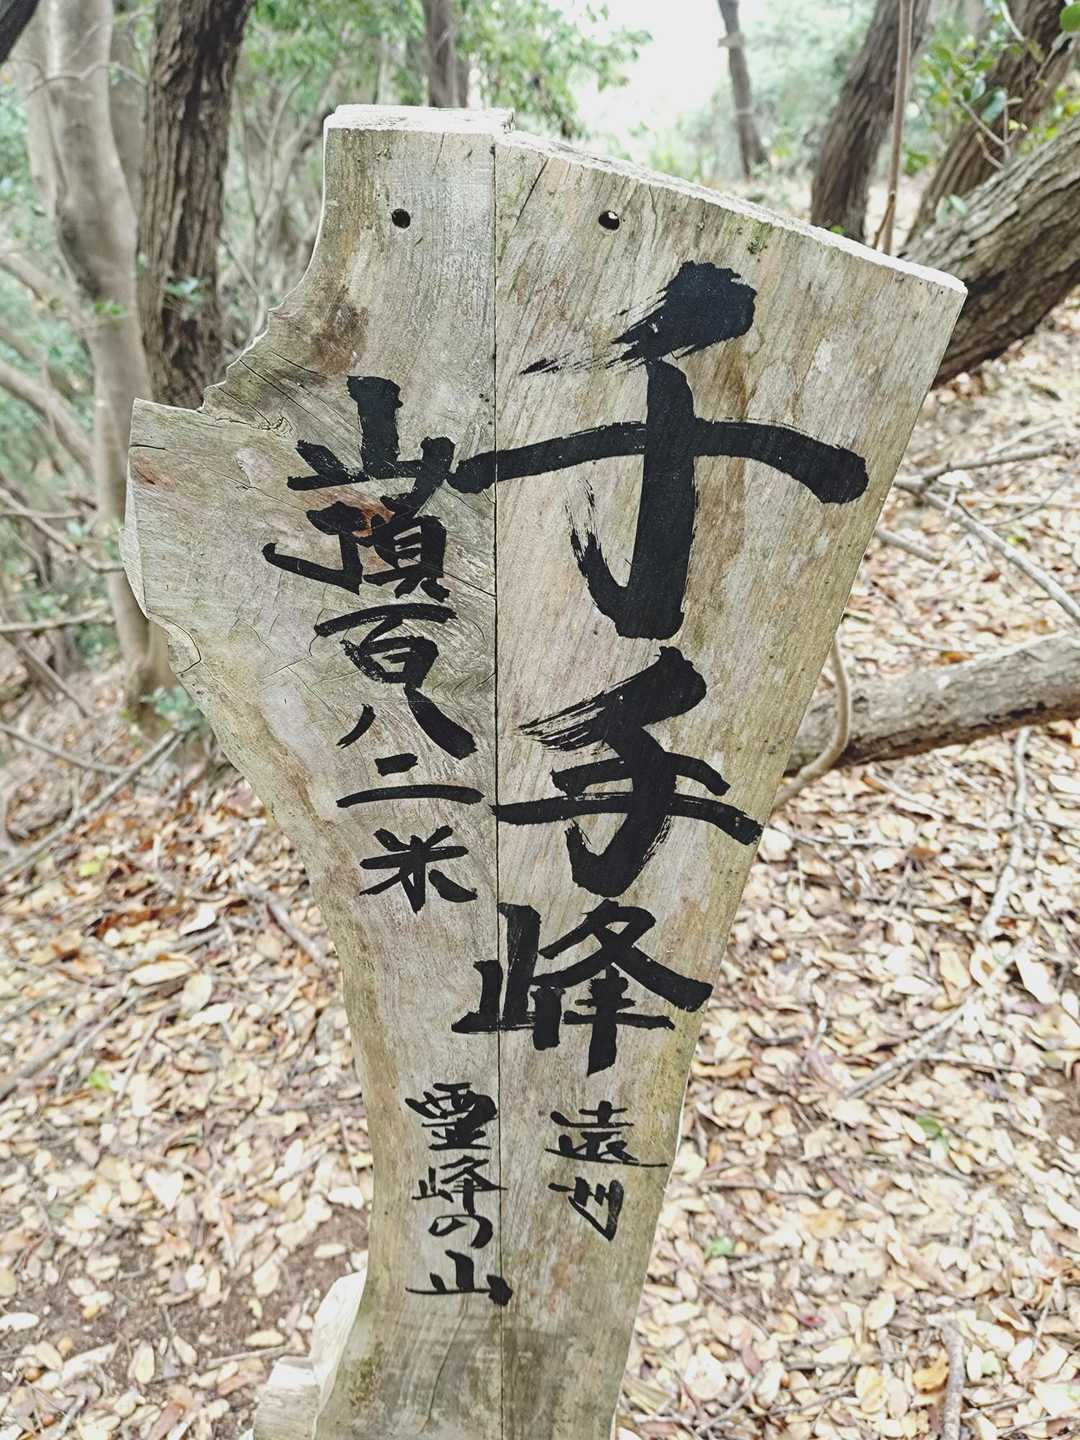 千手峰
山頂百八二米
遠州
霊峰の山